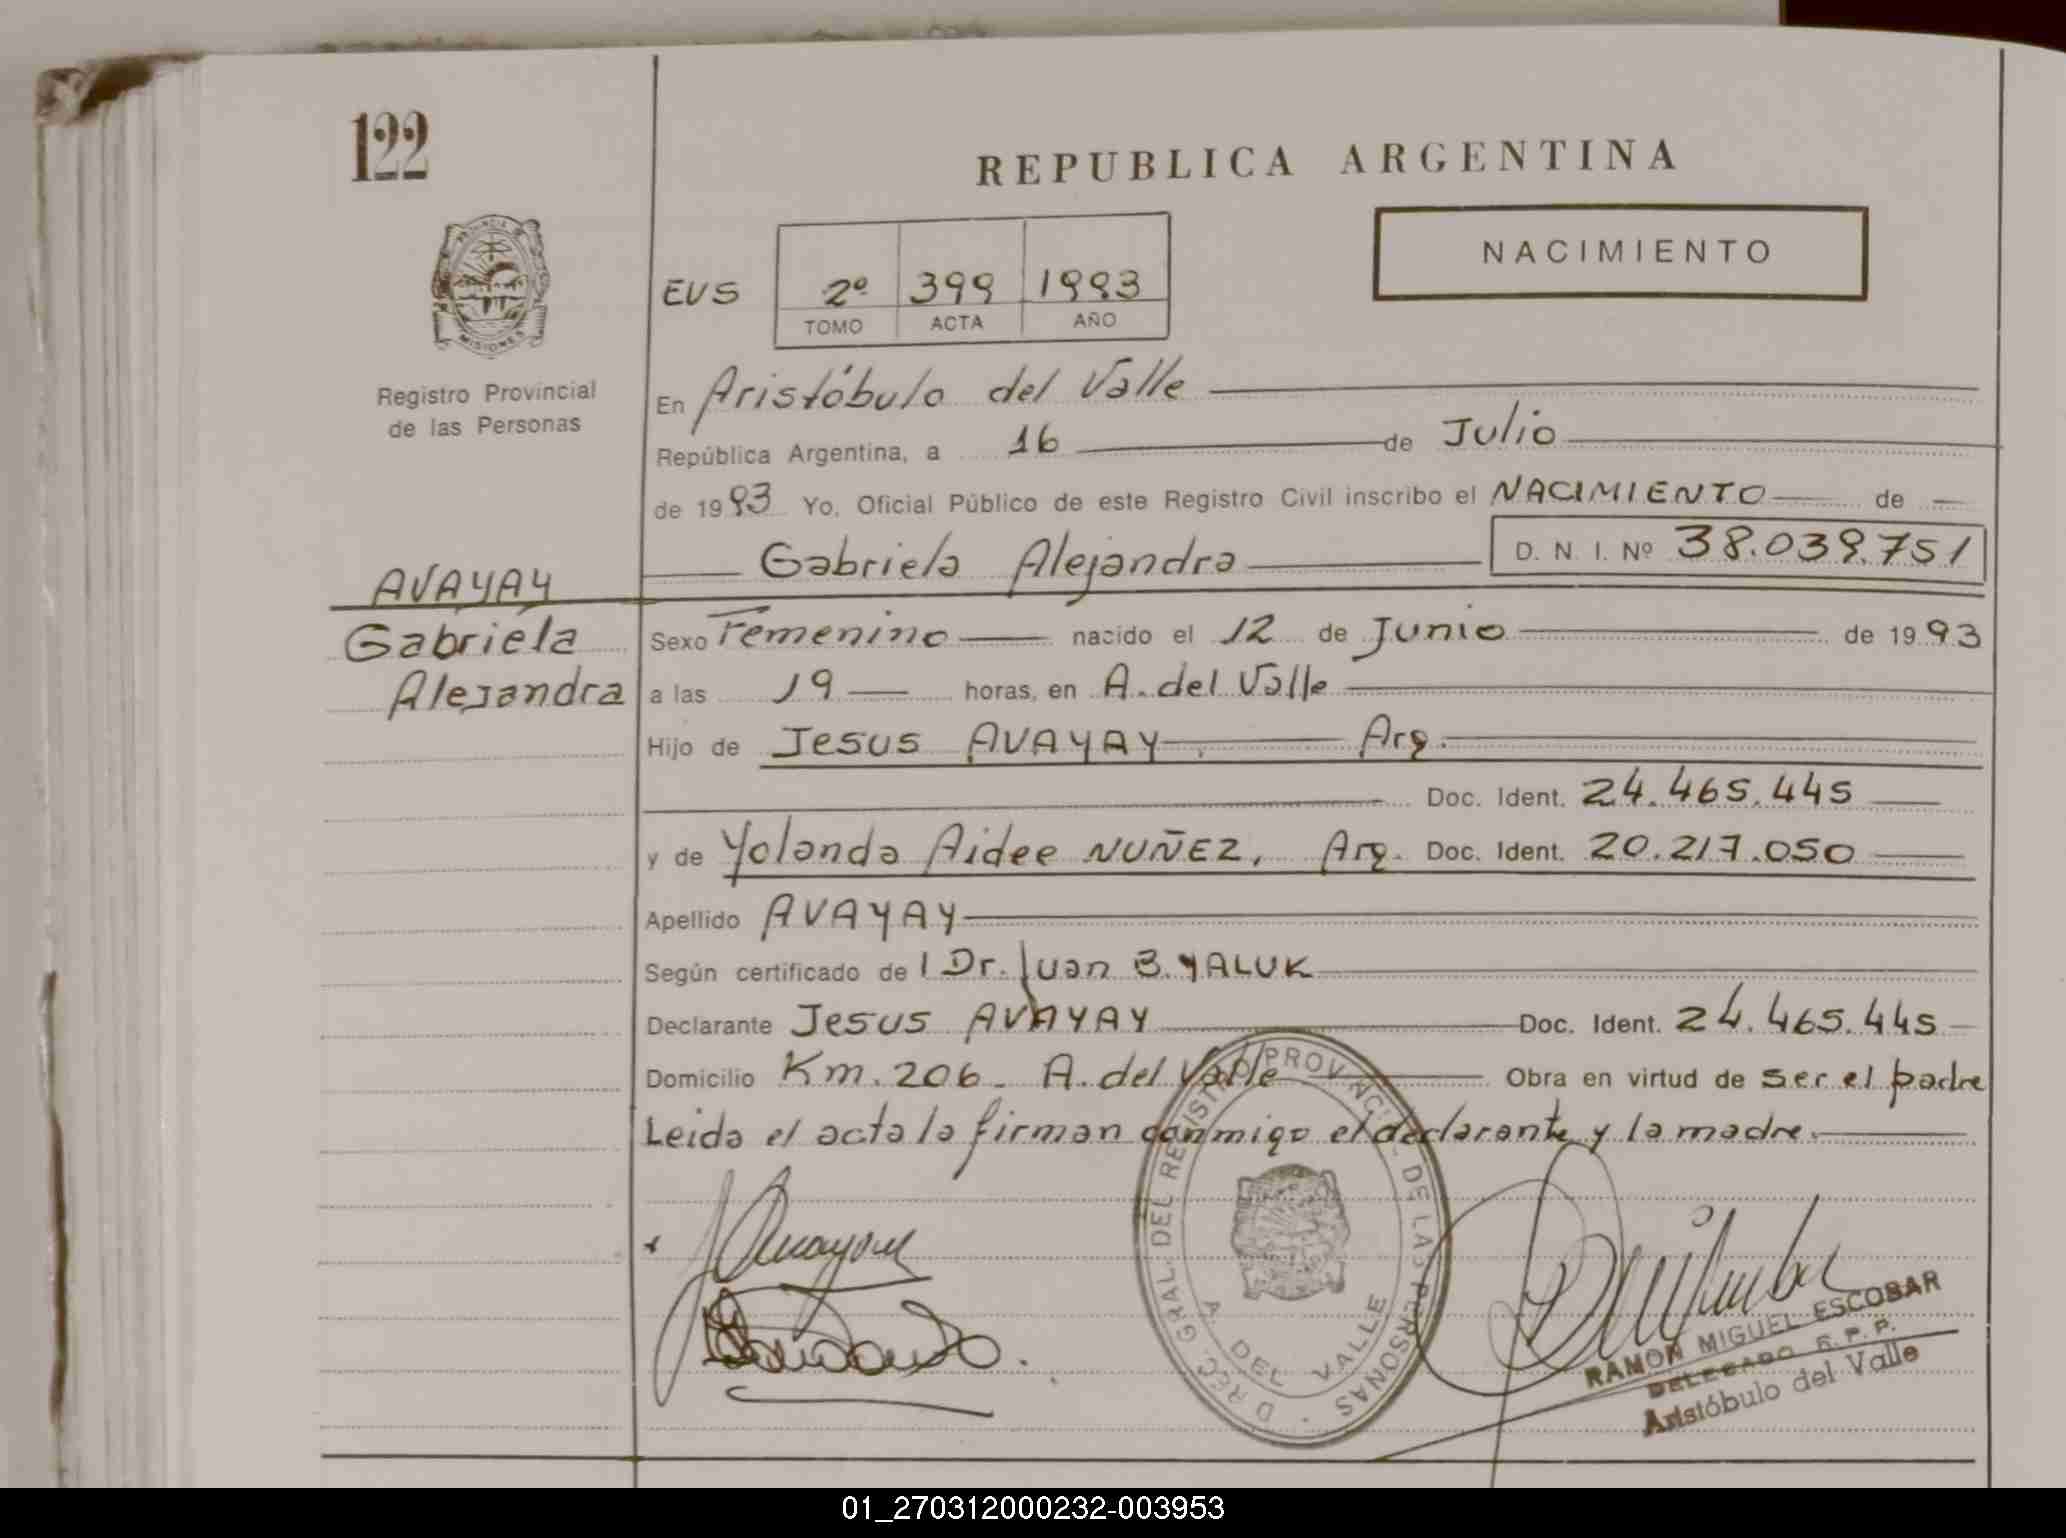 122
REPUBLICA ARGENTINA
NACIMIENTO
PROVINCIA D
MISIONES
Registro Provincial
de las Personas
EUS 2º 399 1993
TOMO ACTA AÑO
En Aristóbulo del Valle
República Argentina, a 16 de Julio
de 1993 Yo, Oficial Público de este Registro Civil inscribo el NACIMIENTO de
Gabriela Alejandra D. N. I. Nº 38.039.751
AVAYAY
Gabriela
Alejandra
Sexo Femenino nacido el 12 de Junio de 1993
a las 19 horas, en A. del Valle
Hijo de Jesus AVAYAY Arg.
Doc. Ident. 24.465.445
y de Yolanda Aidee NUÑEZ, Arg. Doc. Ident. 20.217.050
Apellido AVAYAY
Según certificado de l Dr. Juan B. YALUK
Declarante Jesus AVAYAY Doc. Ident. 24.465.445
Domicilio Km. 206 - A. del Valle Obra en virtud de ser el padre
Leida el acta la firman conmigo el declarante y la madre.
D REC. GRAL. DEL REGISTRO PROVINCIAL DE LAS PERSONAS
A DEL VALLE
RAMON MIGUEL ESCOBAR
DELEGADO R. P. P.
Aristóbulo del Valle
01_270312000232-003953